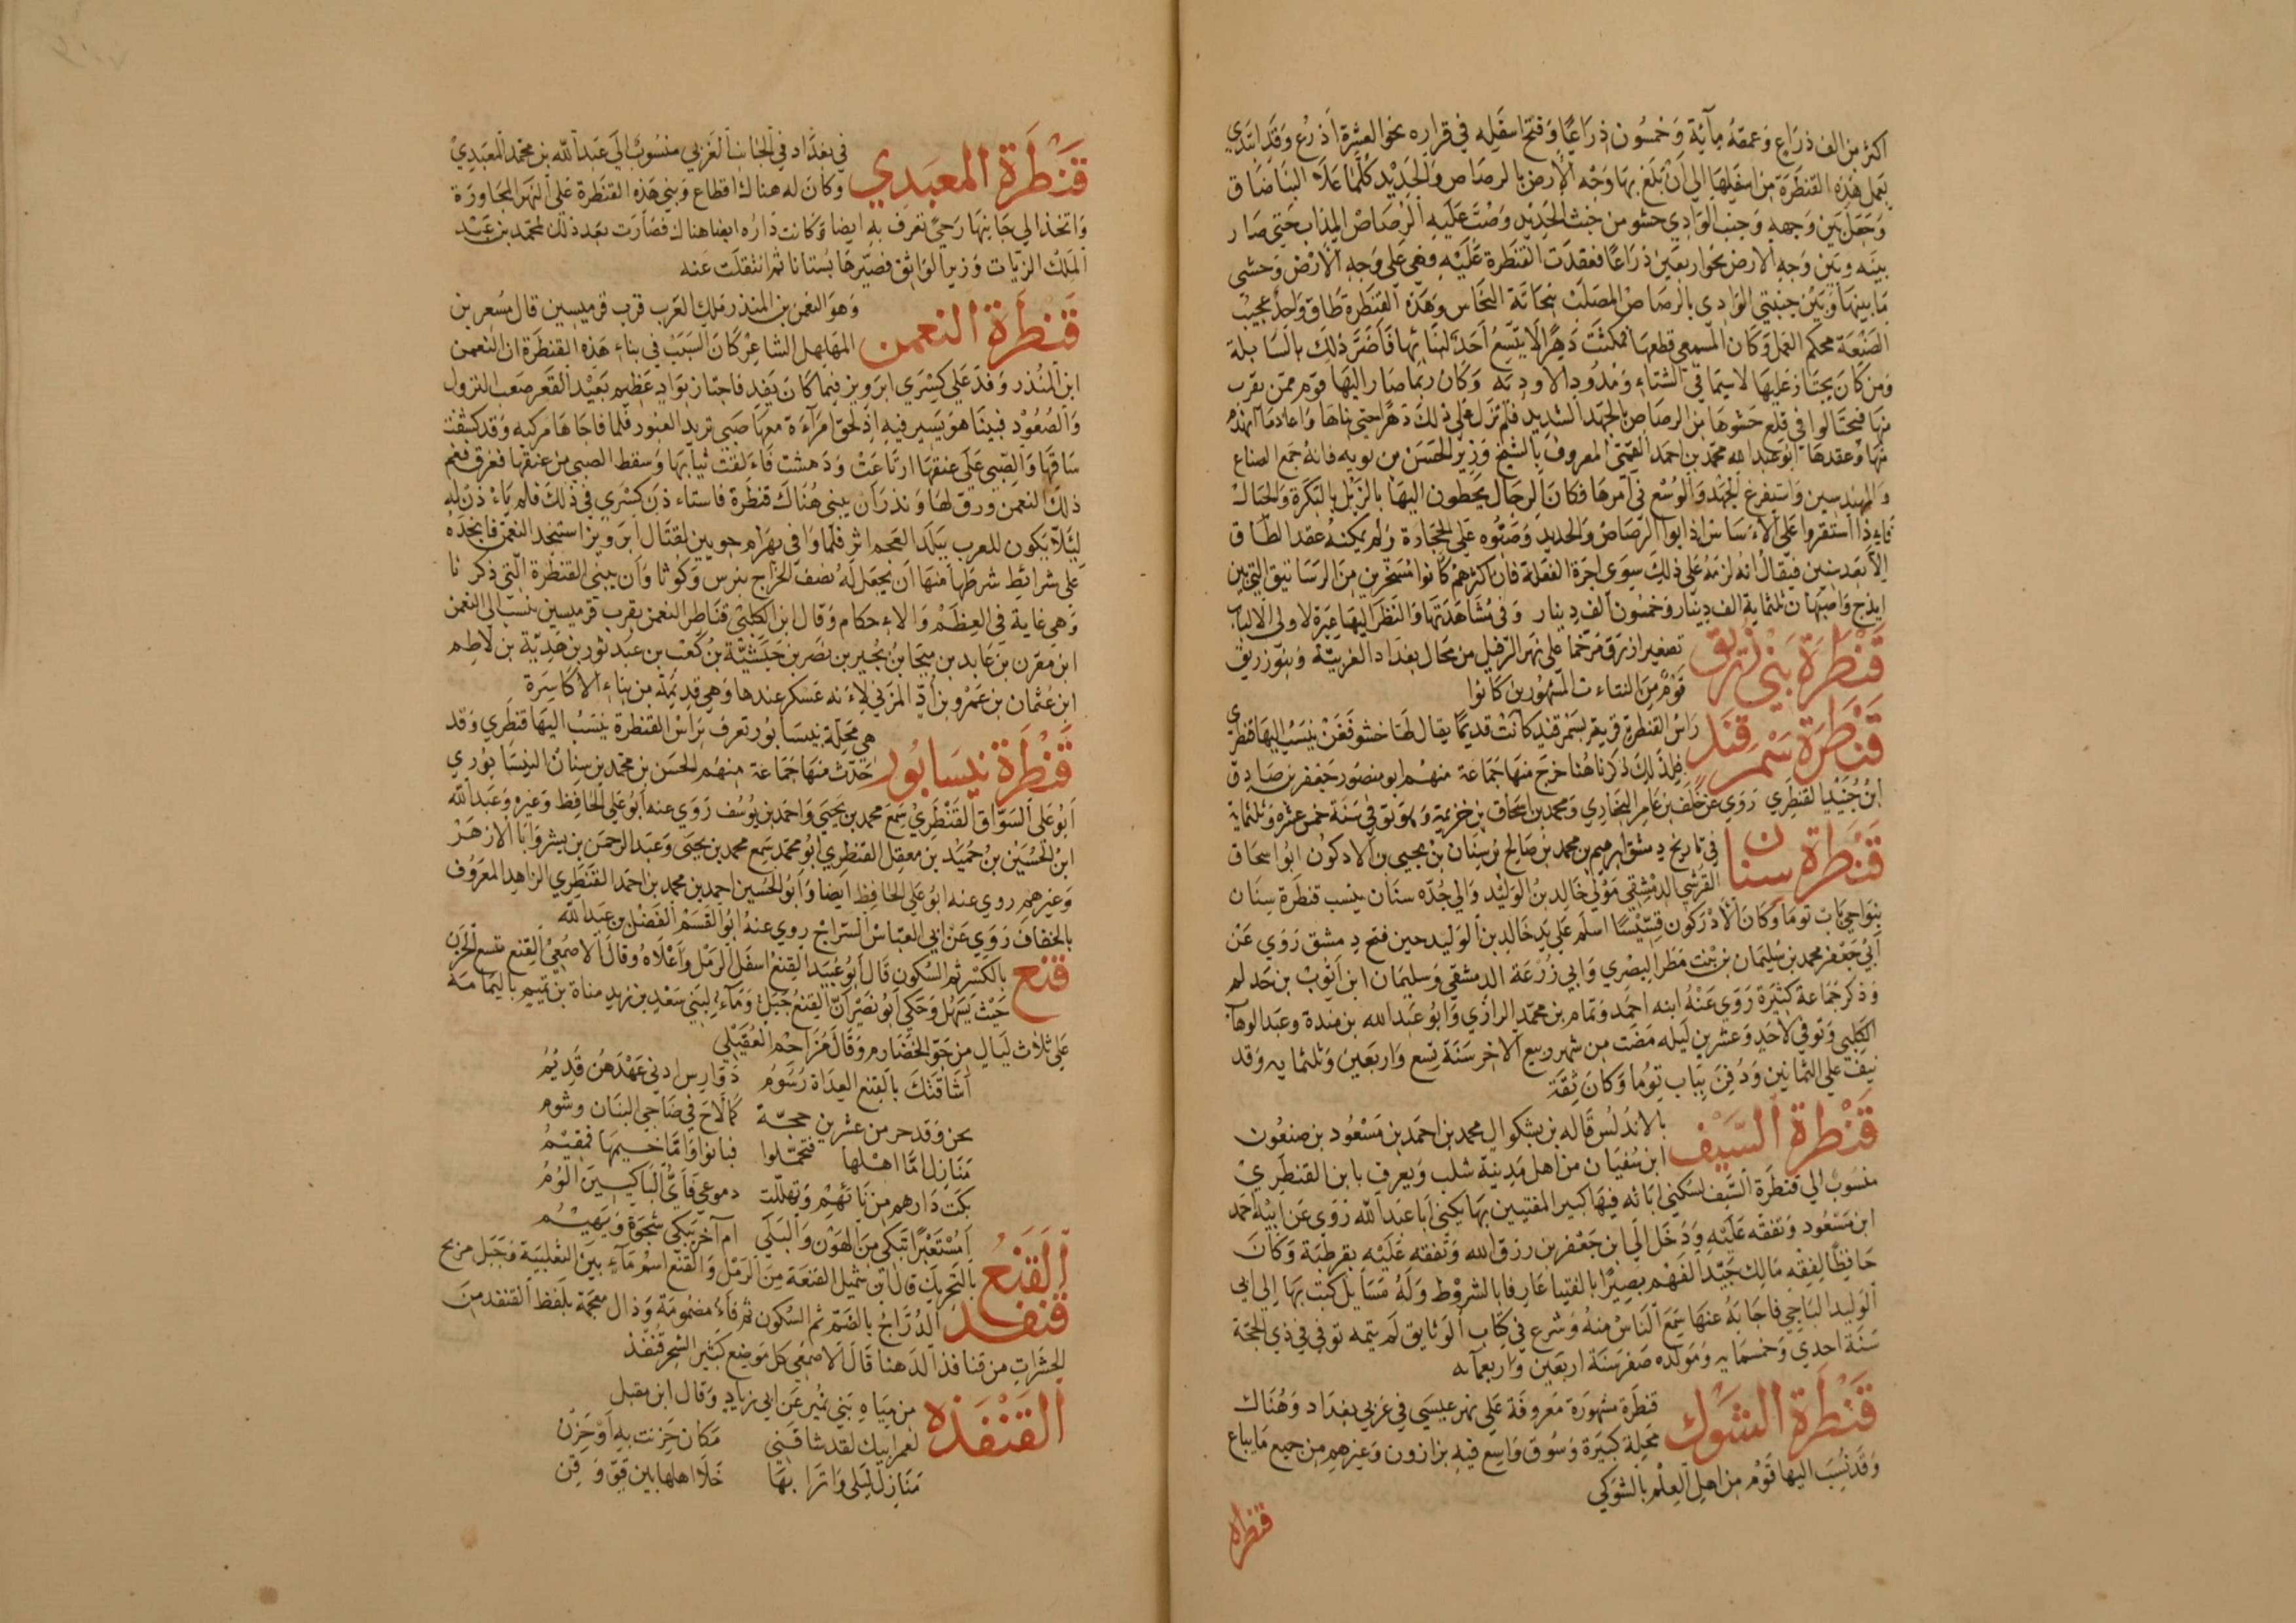 اكثر من الف ذراع وعمقه مأية وخمسون ذراعا وفتح اسفله في قراره نحو العشرة اذرع وقد ابتدي
بعمل هذه القنطرة من اسفلها الي ان بلغ بها وجه الارض بالرصاص والحديد كلما علا البنا ضاق
وجعل بين وجهه وجنب الوادي حشو من خبث الحديد وصب عليه الرصاص المذاب حتى صار
بينه وبين وجه الارض نحو اربعين ذراعا فعقدت القنطرة عليه وهي على وجه الارض وحشى
ما بينها وبين جنبتي الوادي بالرصاص المصلب بنحاتة النحاس وهذه القنطرة طاق واحد عجيب
الصنعة محكم العمل وكان المسمعي قطعها فمكثت دهرا لا يتسع احد لبنائها فاضر ذلك بالسابلة
ومن كان يجتاز عليها لاسيما في الشتاء ومدود الاودية وكان ربما صار اليها قوم ممن يقرب
منها فيحتالوا في قلع حشوها من الرصاص بالجهد الشديد فلم تزل على ذلك دهرا حتى بناها واعاد ما انهدم
منها وعقدها ابو عبد الله محمد بن احمد القمي المعروف بالشيخ وزير الحسن بن بويه فانه جمع الصناع
والمهندسين واستفرغ الجهد والوسع في امرها فكان الرجال يحطون اليها بالزبل بالبكرة والحبال
فاذا استقروا على الاساس اذابوا الرصاص والحديد وصبوه على الحجارة ولم يمكنه عقد الطاق
الا بعد سنين فيقال انه لزمه على ذلك سوى اجرة الفعلة فان اكثرهم كانوا مسخرين من الرساتيق التي بين
ايذج واصبهان ثلثماية الف دينار وخمسون الف دينار وفي مشاهدتها والنظر اليها عبرة لاولى الالباب
قنطرة بني زريق تصغير ازرق مرخما على نهر الرفيل من محال بغداد الغربية وبنو زريق
قوم من التناء المشهورين كانوا
قنطرة سمرقند راس القنطرة قرية بسمرقند كانت قديما يقال لها خشوفغن ينسب اليها قنطري
فلذلك ذكرناها خرج منها جماعة منهم ابو منصور جعفر بن صادق
ابن جنيد القنطري روى عن خلف بن عامر البخاري ومحمد بن اسحاق بن خزيمة وتوفي في سنة خمس عشرة وثلثماية
قنطرة سنان في تاريخ دمشق ابرهيم بن محمد بن صالح بن سنان بن يحيى بن الادركون ابو اسحاق
القرشي الدمشقي مولى خالد بن الوليد والي جده سنان ينسب قنطرة سنان
بنواحي باب توما وكان الادركون قسيسا اسلم على يد خالد بن الوليد حين فتح دمشق روى عن
ابي جعفر محمد بن سليمان بن بنت مطر البصري وابي زرعة الدمشقي وسليمان ابن ايوب بن حذلم
وذكر جماعة كثيرة روى عنه ابنه احمد وتمام بن محمد الرازي وابو عبد الله بن مندة وعبد الوهاب
الكلبي وتوفي لاحد وعشرين ليله مضت من شهر ربيع الاخر سنة تسع واربعين وثلثمايه وقد
نيف على الثمانين ودفن بباب توما وكان ثقة
قنطرة السيف بالاندلس قاله بن بشكوال محمد بن احمد بن مسعود بن صنعون
ابن سفيان من اهل مدينة شلب ويعرف بابن القنطري
منسوب الي قنطرة السيف لسكنى ابائه فيها كبير المفتيين بها يكنى ابا عبد الله روى عن ابيه احمد
ابن مسعود وتفقه عليه ودخل الي ابن جعفر بن رزق الله وتفقه عليه بقرطبة وكان
حافظا لفقه مالك جيد الفهم بصيرا بالفتيا عارفا بالشروط وله مسايل كتب بها الى ابي
الوليد الباجي فاجابه عنها سمع الناس منه وشرع في كتاب الوثايق لم يتمه توفي في ذي الحجة
سنة احدي وخمسمايه ومولده صفر سنة اربعين واربعمايه
قنطرة الشوك قنطرة مشهورة معروفة على نهر عيسى في غربي بغداد وهناك
محلة كبيرة وسوق واسع فيه بزازون وغيرهم من جميع ما يباع
وقد نسب اليها قوم من اهل العلم بالشوكي
قنطرة
قنطرة المعبدي في بغداد في الجانب الغربي منسوب الى عبد الله بن محمد المعبدي
وكان له هناك اقطاع وبنى هذه القنطرة على النهر المجاورة
واتخذ الي جانبها رحي تعرف به ايضا وكانت داره ايضا هناك فصارت بعد ذلك لمحمد بن عبد
الملك الزيات وزير الواثق فصيرها بستانا ثم انتقلت عنه
قنطرة النعمن وهو النعمن بن المنذر ملك العرب قرب قرميسين قال مسعر بن
المهلهل الشاعر كان السبب في بناء هذه القنطرة ان النعمن
ابن المنذر وفد على كسرى ابرويز فيما كان يفد فاجتاز بواد عظيم بعيد القعر صعب النزول
والصعود فبينا هو يسير فيه اذ لحق امراءة معها صبي تريد العبور فلما فاجاها مركبه وقد كشفت
ساقها والصبي على عنقها ارتاعت ودهشت فالقت ثيابها وسقط الصبي من عنقها فغرق فغم
ذلك النعمن ورق لها ونذر ان يبنى هناك قنطرة فاستاءذن كسرى في ذلك فلم ياءذن له
لئلا يكون للعرب ببلد العجم اثر فلما وافى بهرام جوبين لقتال ابرويز استنجد النعمن فانجده
على شرائط شرطها منها ان يجعل له نصف الخراج بنرس وكوثا وان يبنى القنطرة التي ذكرنا
وهي غاية في العظم والاءحكام وقال ابن الكلبي قناطر النعمن بقرب قرميسين نسب الى النعمن
ابن مقرن بن عايد بن ميجا بن بجير بن نصر بن حبشية بن كعب بن عبد ثور بن هدية بن لاطم
ابن عثمان بن عمرو بن اد المزني لاءنه عسكر عندها وهي قديمة من بناء الاكاسرة
قنطرة نيسابور هي محلة بنيسابور تعرف براس القنطرة ينسب اليها قنطري وقد
حدث منها جماعة منهم الحسن بن محمد بن سنان النيسابوري
ابو على السواق القنطري سمع محمد بن يحيى واحمد بن يوسف روى عنه ابو على الحافظ وغيره وعبد الله
ابن الحسين بن حميد بن معقل القنطري ابو محمد سمع محمد بن يحيى وعبد الرحمن بن بشر وابا الازهر
وغيرهم روى عنه ابو على الحافظ ايضا وابو الحسين احمد بن محمد بن احمد القنطري الزاهد المعروف
بالخفاف روى عن ابي العباس السراج روي عنه ابو القسم الفضل بن عبد الله
قنع بالكسر ثم السكون قال ابو عبيد القنع اسفل الرمل واعلاه وقال الاصمعي القنع متسع الحزن
حيث يسهل وحكي ابو نصر ان القنع جبل وماء لبني سعد بن زيد مناة بن تميم باليمامة
على ثلاث ليال من جو الخضارم وقال مزاحم العقيلي
اشاقتك بالقنع الغداة رسوم دوارس ادنى عهدهن قديم
يحن وقد جر من عشرين حجة كما لاح في ضاحي البنان وشوم
منازل اما اهلها فتحملوا فبانوا واما خيمها فمقيم
بكت دارهم من نائهم وتهللت دموعي فأي الباكيين الوم
امستعبرا تبكي من الهون والبلى ام آخر تبكي شجوة ويهيم
القنع بالتحريك قال ابن شميل القنعة من الرمل والقنع اسم ماء بين الثعلبية وجبل مربخ
قنفذ الدراج بالضم ثم السكون ثم فاء مضمومة وذال معجمة بلفظ القنفذ من
الحشرات من قنافذ الدهنا قال الاصمعي كل موضع كثير الشجر قنفذ
القنفذه من مياه بني نمير عن ابي زياد وقال ابن مقبل
لعمر ابيك لقد شاقني مكان حزنت به او حزن
منازل ليلى واترابها خلا اهلها بين قو وقن